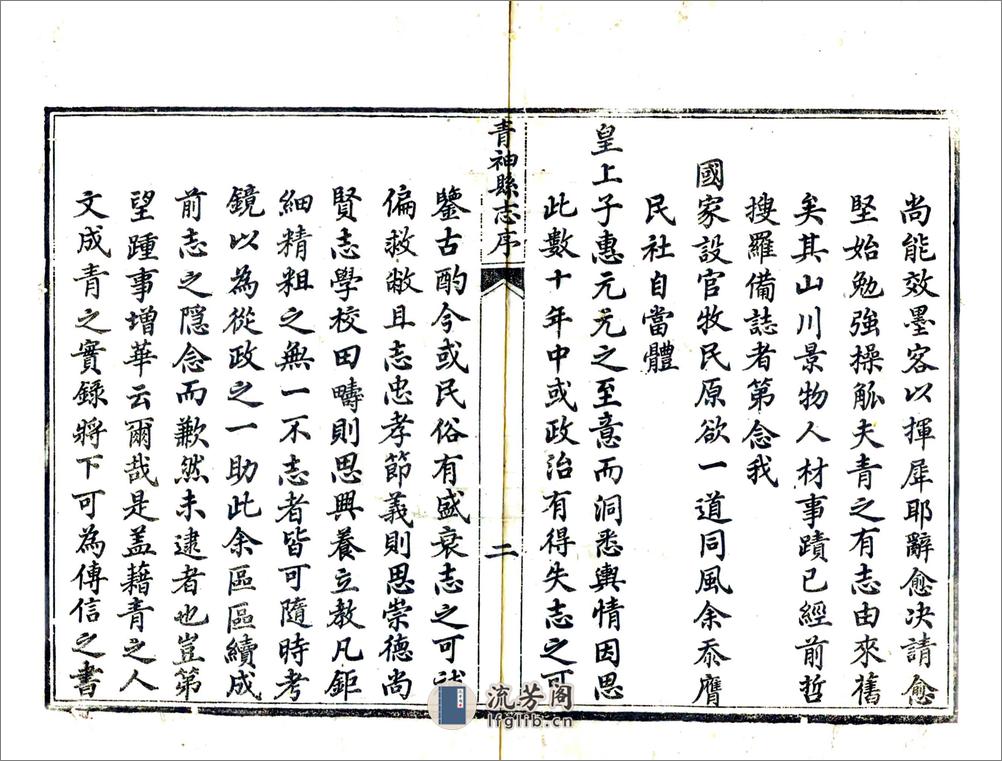 尚能效墨客以揮犀耶辭愈决請愈
堅始勉強操觚夫青之有志由來舊
矣其山川景物人材事蹟已經前哲
搜羅備誌者第念我
國家設官牧民原欲一道同風余忝膺
民社自當體
皇上子惠元元之至意而洞悉輿情因思
此數十年中或政治有得失志之可
青神縣志序
二
鑒古酌今或民俗有盛衰志之可
偏救敝且志忠孝節義則思崇德尚
賢志學校田疇則思興養立教凡鉅
細精粗之無一不志者皆可隨時考
鏡以為從政之一助此余區區續成
前志之隱念而歉然未逮者也豈第
望踵事增華云爾哉是盖藉青之人
文成青之實錄將下可為傳信之書
流芳阁
lfglib.cn